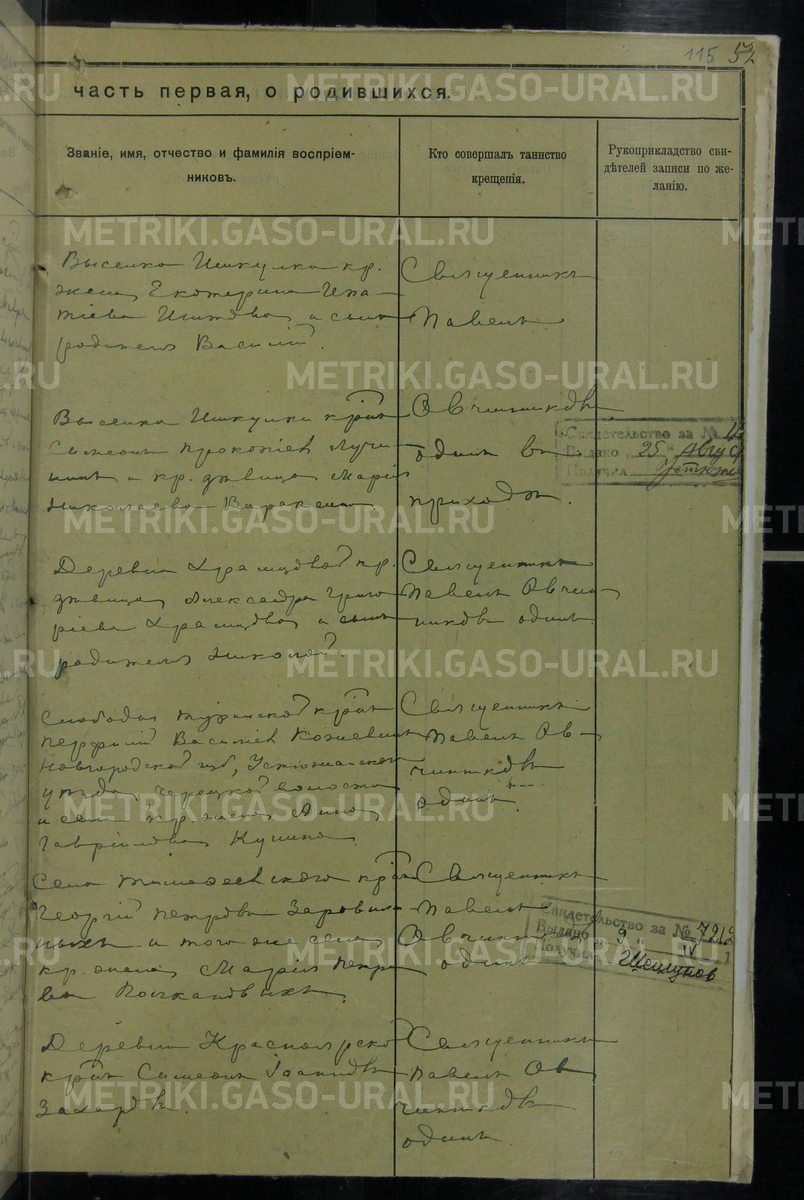 115 52
часть первая, о родившихся.
Званіе, имя, отчество и фамилія воспріем-
никовъ.
Кто совершалъ таинство
крещенія.
Рукоприкладство сви-
дѣтелей записи по же-
ланію.
Выселка Ишкулка кр.
жена Екатерина Ипа-
тіева и сынъ
родителя Василій.
Священникъ
Павелъ
Овчинниковъ
одинъ въ
приходѣ.
Выселка Ишкулки кр̃нъ
Симеонъ Прокопіев
и кр. дѣвица Марія
Николаева Вараксина
Свидетельство за №
Выдано „25" Авгус
Получил
Деревни Храмцовой кр.
дѣвица Александра Григо
ріева Храмцова и сынъ
родителя Николай.
Священникъ
Павелъ Овчин
никовъ одинъ.
Слободы Туринской кр̃нъ
Перфилій Василіев
Новгородской губ, Устюжнской
уѣзда, волости
и села кр. жена Анна
Гаврилова Кунина
Священникъ
Павелъ Ов-
чинниковъ
одинъ.
Села Тимофеевского кр̃нъ
Георгій Петровъ Заровня-
ныхъ и того же села
кр. жена Марія Петро
ва
Священникъ
Павелъ
Овчинников
одинъ
Свидетельство за № 7212
Выдано „9" IV
Получил Шешуков
Деревни Красноярско
кр̃нъ Симеонъ Іоанновъ
Захаровъ.
Священникъ
Павелъ Ов
чинниковъ
одинъ.
METRIKI.GASO-URAL.RU